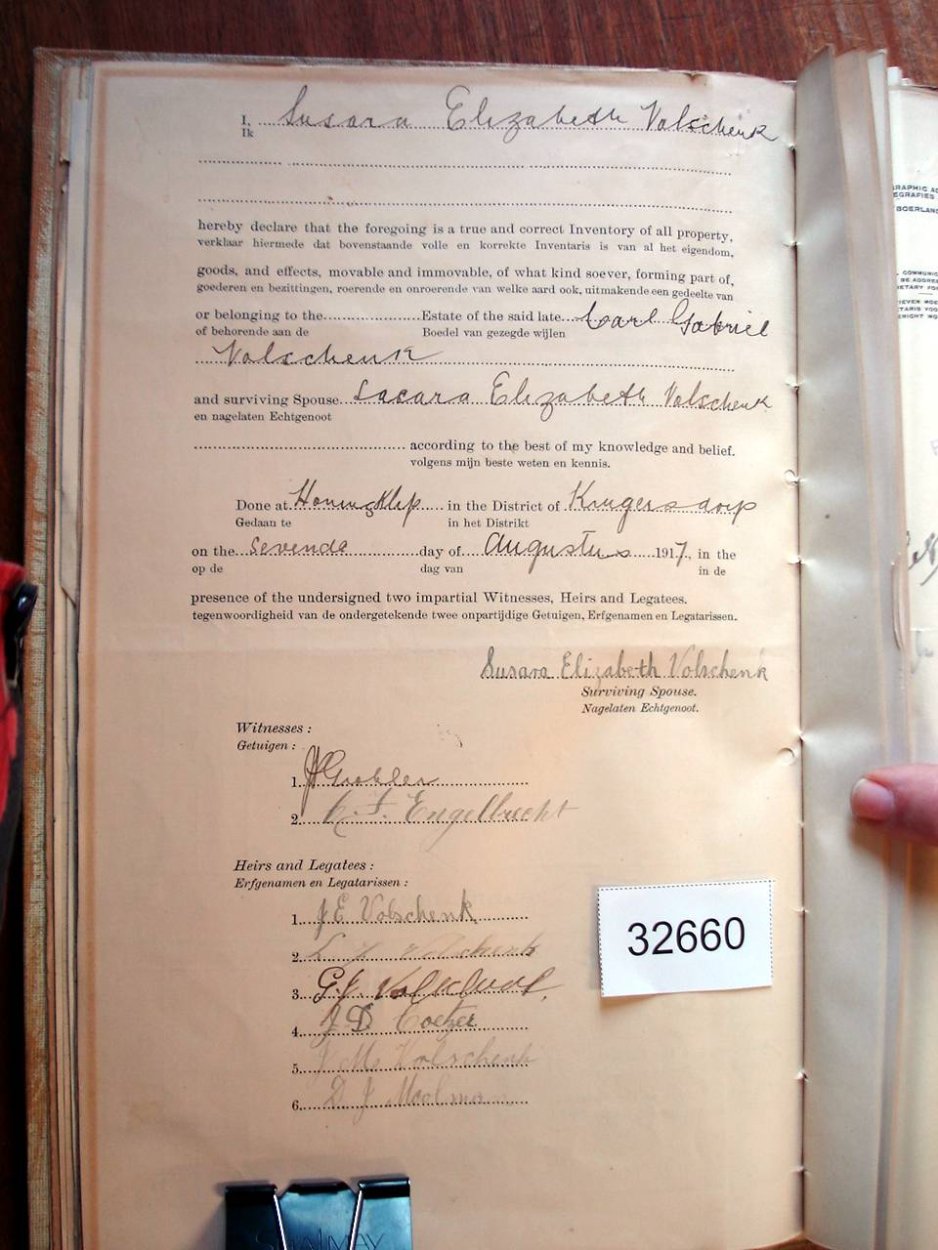 I, Susara Elizabeth Volschenk
Ik
hereby declare that the foregoing is a true and correct Inventory of all property,
verklaar hiermede dat bovenstaande volle en korrekte Inventaris is van al het eigendom,
goods, and effects, movable and immovable, of what kind soever, forming part of,
goederen en bezittingen, roerende en onroerende van welke aard ook, uitmakende een gedeelte van
or belonging to the Estate of the said late Carl Gabriel
of behorende aan de Boedel van gezegde wijlen
Volschenk
and surviving Spouse Sacara Elizabeth Volschenk
en nagelaten Echtgenoot
according to the best of my knowledge and belief.
volgens mijn beste weten en kennis.
Done at Honingklip in the District of Krugersdorp
Gedaan te in het Distrikt
on the sevende day of Augustus 1917, in the
op de dag van in de
presence of the undersigned two impartial Witnesses, Heirs and Legatees.
tegenwoordigheid van de ondergetekende twee onpartijdige Getuigen, Erfgenamen en Legatarissen.
Susara Elizabeth Volschenk
Surviving Spouse.
Nagelaten Echtgenoot.
Witnesses:
Getuigen:
1. Grobler
2. Engelbrecht
Heirs and Legatees:
Erfgenamen en Legatarissen:
1. J E Volschenk
2. Volschenk
3. G. J. Volschenk
4. J D Coetzer
5. J M Volschenk
6. D J Moolman
32660